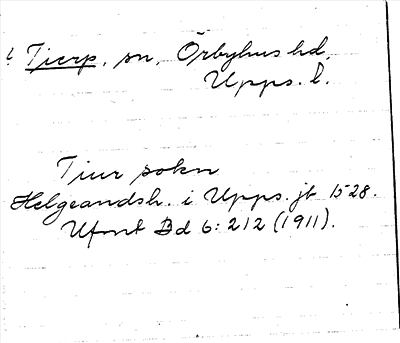 Tierp, sn, Örbyhus hd,
Upps. l.
Tiur sokn
Helgeandsh. i Upps. jb 1528.
Ufmt Bd 6: 212 (1911).